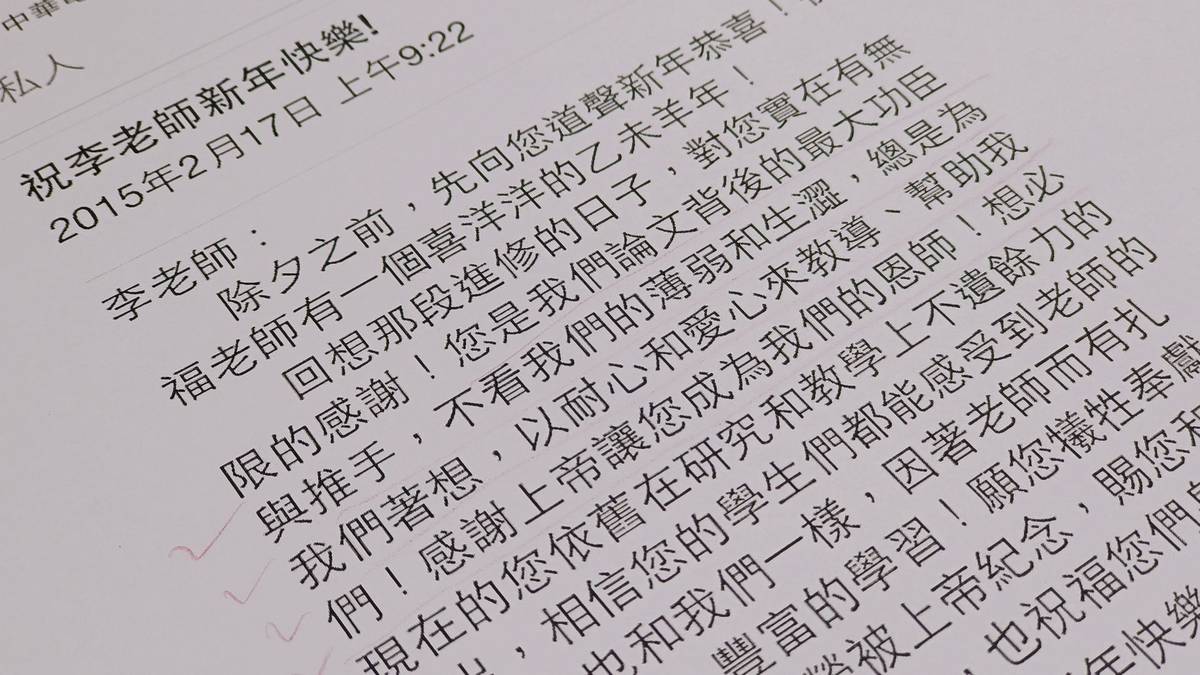 中華電
私人
祝李老師新年快樂!
2015年2月17日 上午9:22
李老師：
除夕之前，先向您道聲新年恭喜！祝
福老師有一個喜洋洋的乙未羊年！
回想那段進修的日子，對您實在有無
限的感謝！您是我們論文背後的最大功臣
與推手，不看我們的薄弱和生澀，總是為
我們著想，以耐心和愛心來教導、幫助我
們！感謝上帝讓您成為我們的恩師！想必
現在的您依舊在研究和教學上不遺餘力的
，相信您的學生們都能感受到老師的
也和我們一樣，因著老師而有扎
豐富的學習！願您犧牲奉獻
被上帝紀念，賜您和
！也祝福您們
年快樂